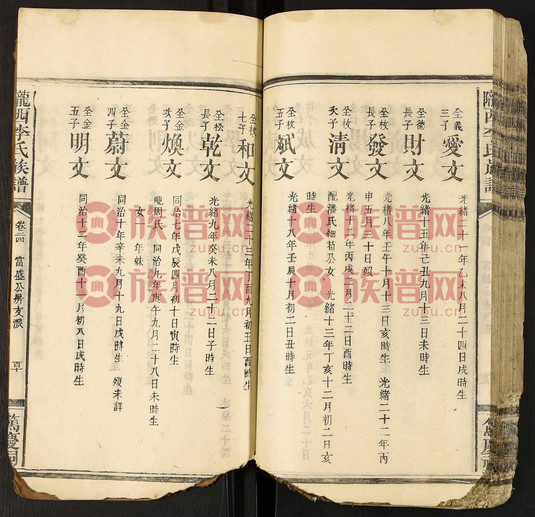 隴西李氏族譜
愛文
全義
三子
光緒二十一年乙未八月二十四日戌時生
財文
全德
長子
光緒十五年己丑九月十三日未時生
發文
全枚
長子
光緒十年壬午十月十三日亥時生 光緒二十二年丙
申五月三十日歿
清文
全枚
次子
光緒十二年丙戌二月二十二日酉時生
配潘氏 細菊公女 光緒十三年丁亥十二月初二日亥
時生
斌文
全枚
五子
光緒十八年壬辰十月初二日丑時生
篤慶祠
和文
全枚
七子
光緒二十三年丁酉九月初五日酉時生
乾文
全松
長子
光緒九年癸未八月二十二日子時生
煥文
全金
次子
同治七年戊辰四月初十日寅時生
龍周氏 同治九年庚午九月二十八日未時生
女 年妹
蔚文
全金
四子
同治十年辛未九月十九日戌時生 歿未詳
明文
全金
五子
同治十二年癸酉十二月初八日戌時生
隴西李氏族譜
卷二四
富盛公房支派
篤慶祠
族譜网
族譜网
族譜网
族譜网